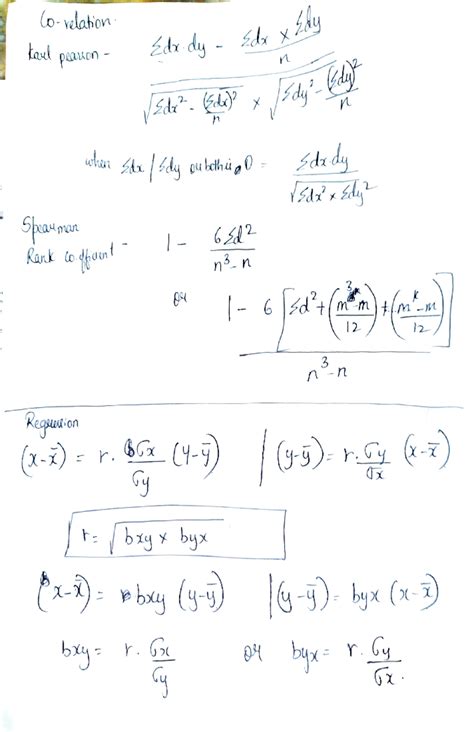 Co-relation.
Karl pearson - Σdx·dy - Σdx × Σdy / n
√Σdx² - (Σdx)² / n × √Σdy² - (Σdy)² / n
when Σdx / Σdy or both is 0 = Σdx·dy / √Σdx² × Σdy²
Spearman
Rank co.efficient - 1 - 6Σd² / n³-n
or 1 - 6 [Σd² + (m³-m / 12) + (m - m / 12)] / n³-n
Regression
(x-x̄) = r. σx / σy (y-ȳ) | (y-ȳ) = r. σy / σx (x-x̄)
r = √bxy × byx
(x-x̄) = bxy (y-ȳ) | (y-ȳ) = byx (x-x̄)
bxy = r. σx / σy or byx = r. σy / σx.